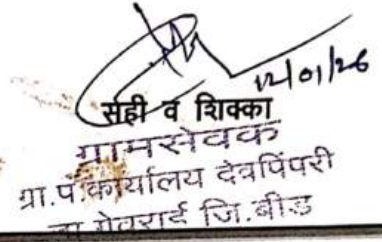 12/01/26
सही व शिक्का
ग्रामसेवक
ग्रा.पं.कार्यालय देवपिंपरी
ता गेवराई जि.बीड